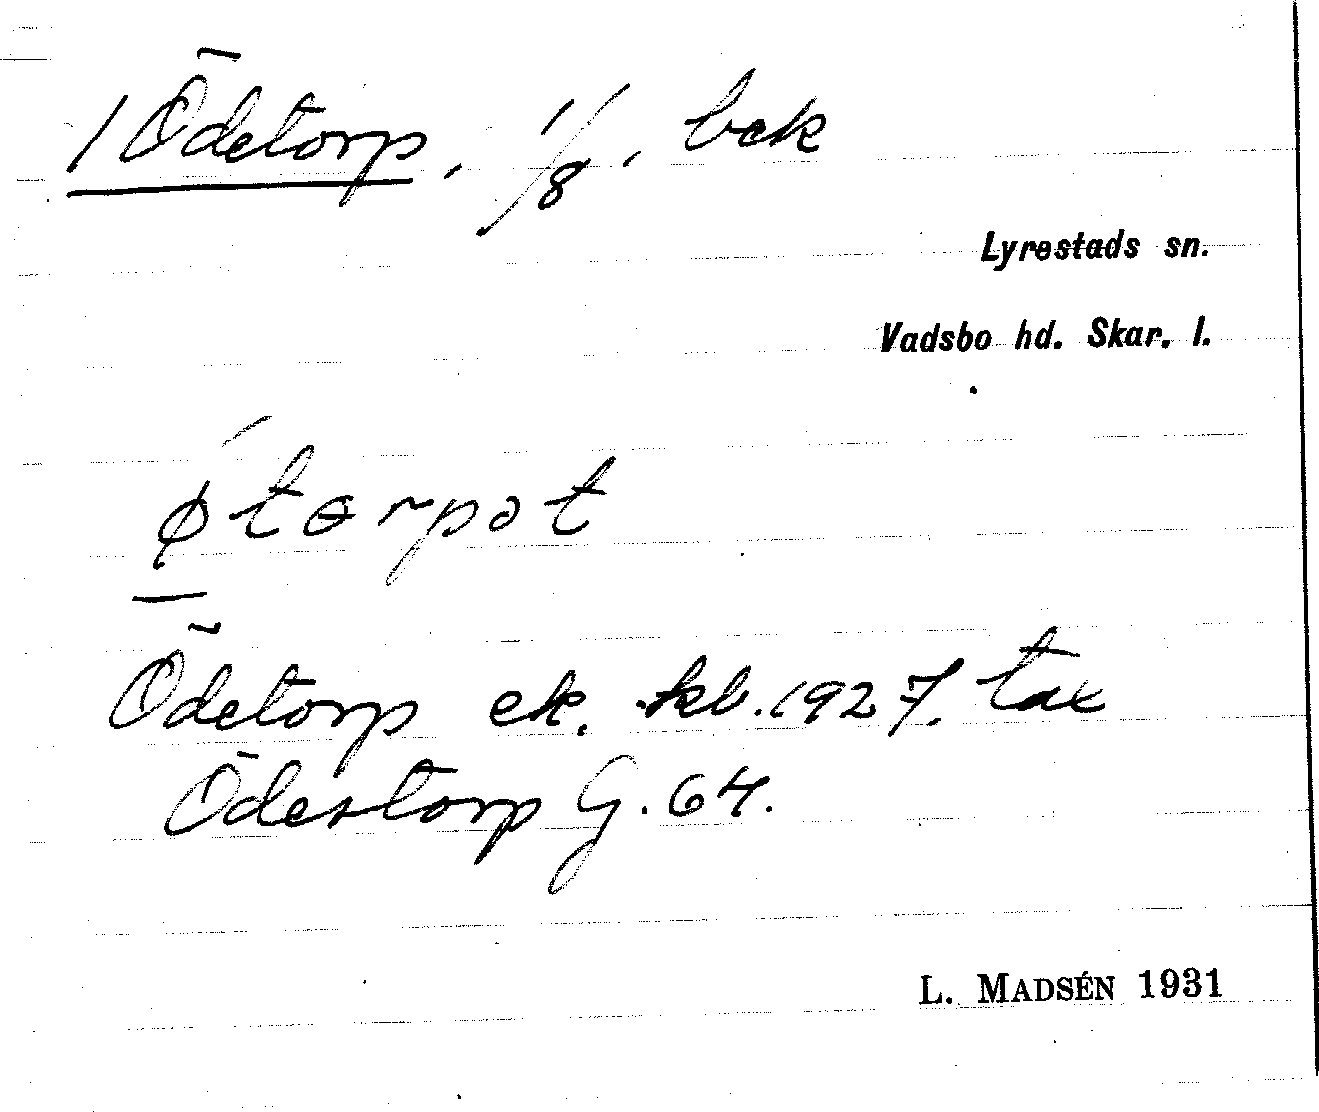 1 Ödetorp, 1/8, bek
Lyrestads sn.
Vadsbo hd. Skar. l.
ǿtɵrpət
Ödetorp ek. kb. 1927, tax
Ödestorp G. 64.
L. MADSÉN 1931